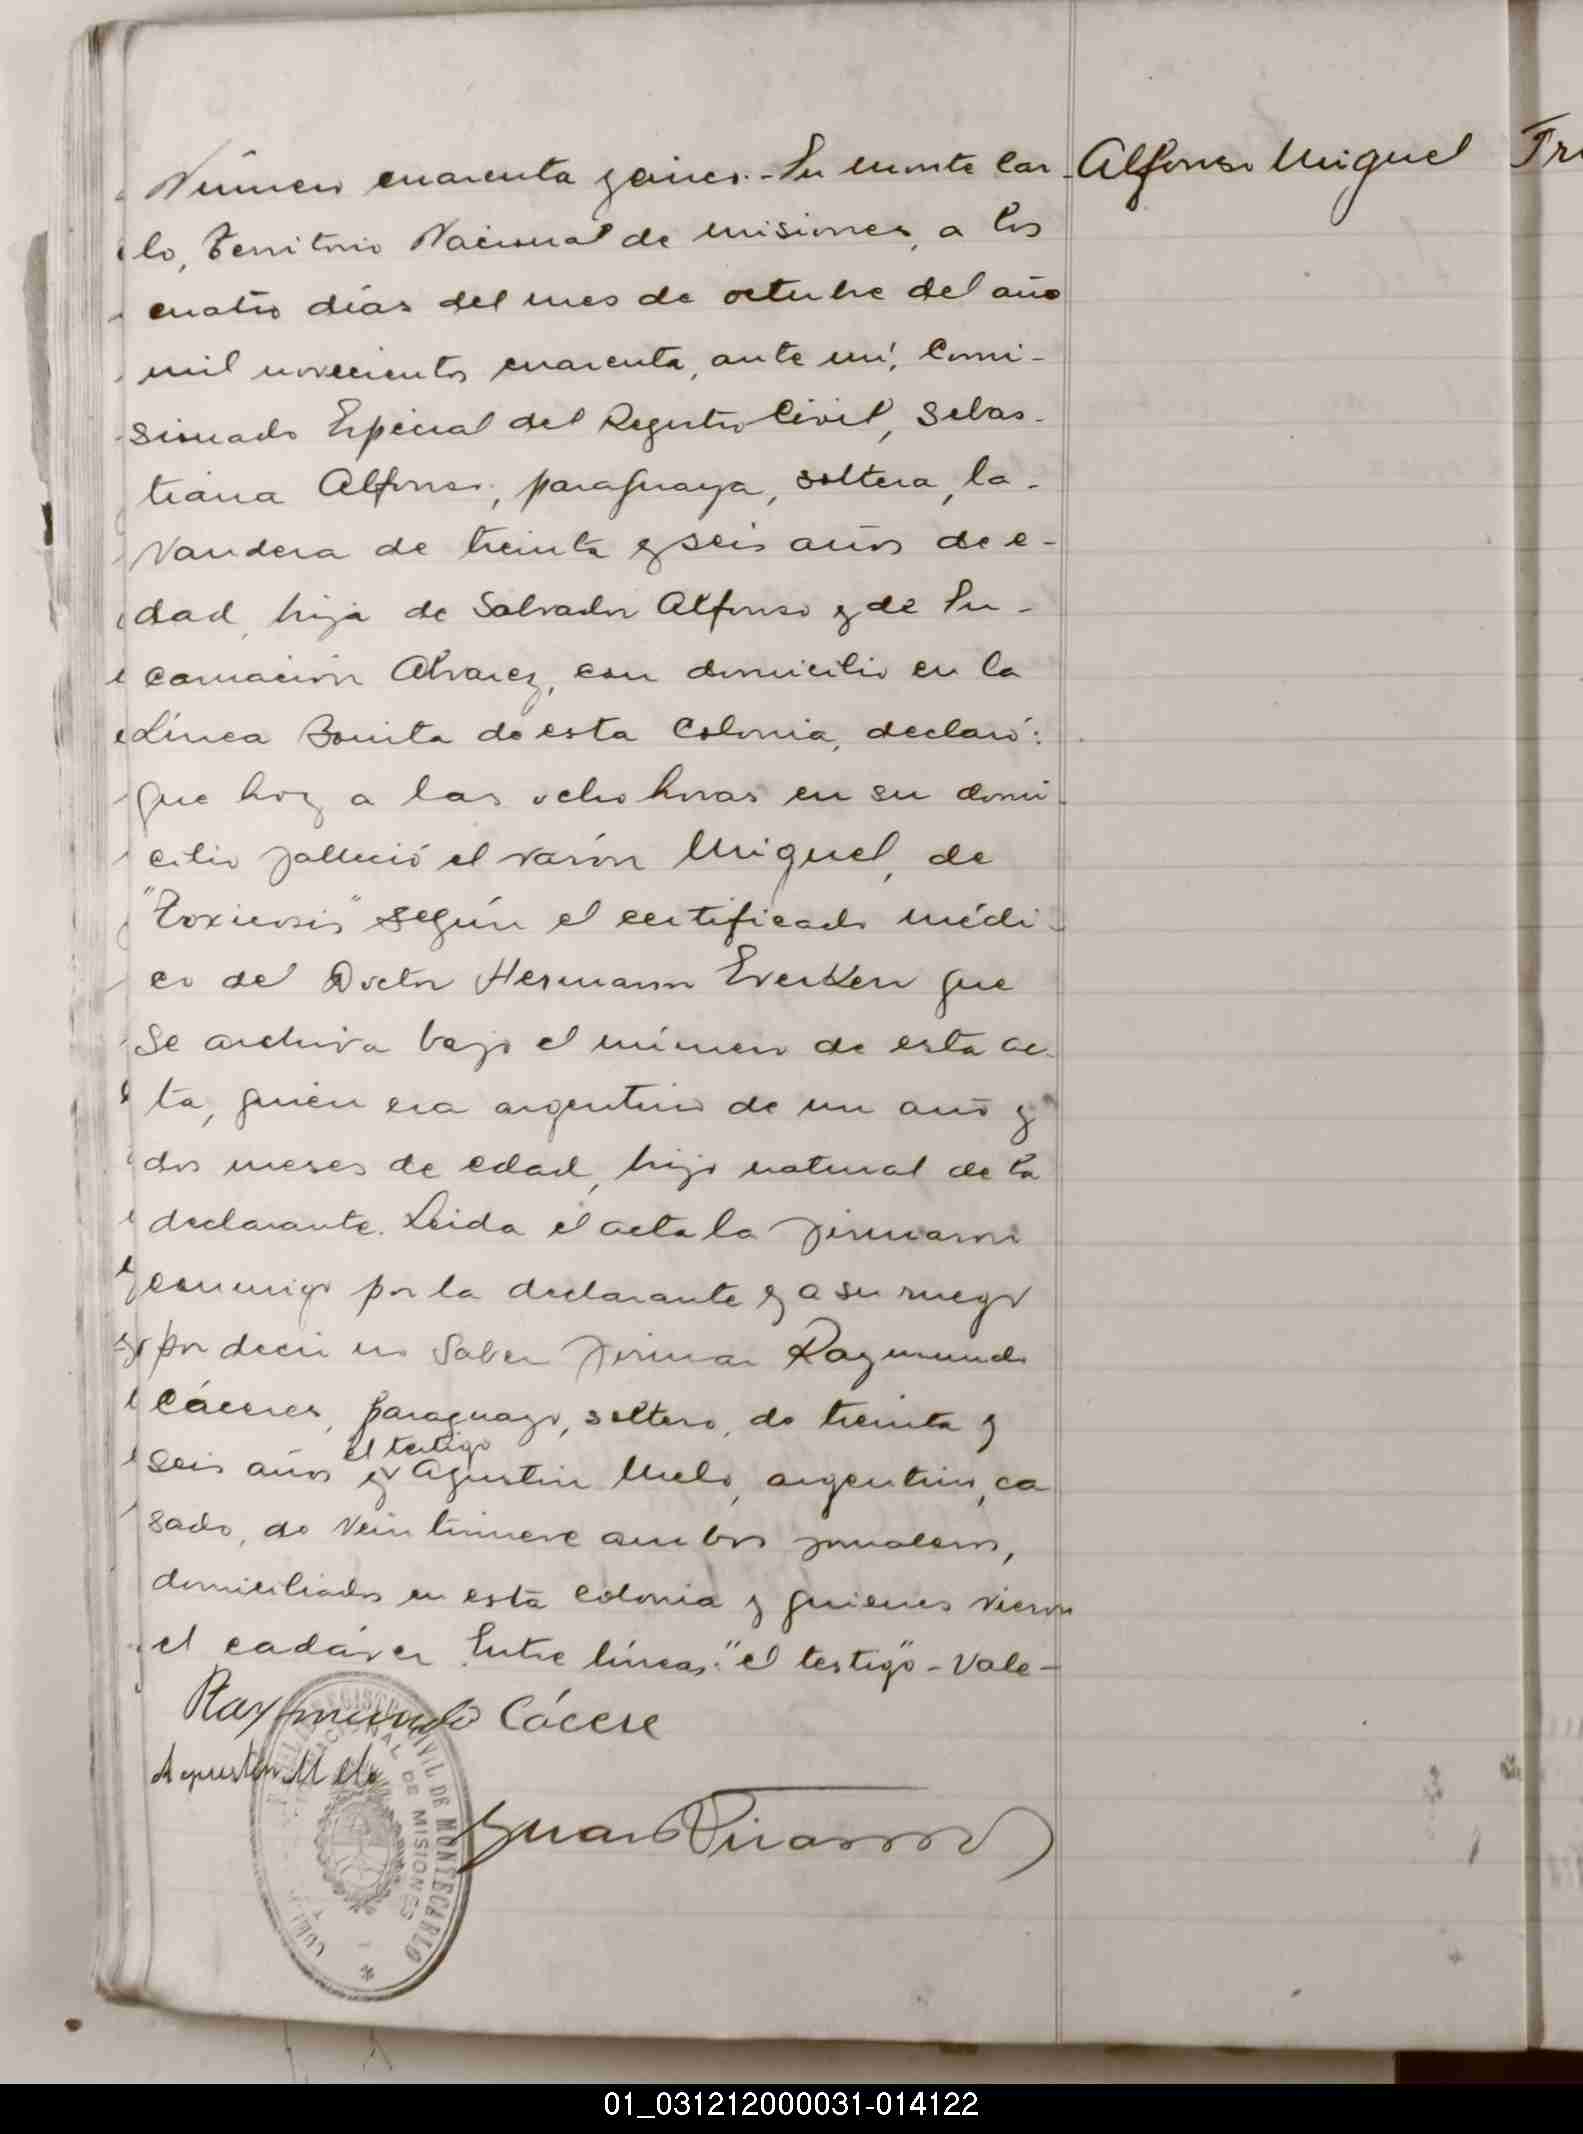 Número cuarenta y cinco.- En Monte Car-
Alfonso Miguel
lo, Territorio Nacional de Misiones, a los
cuatro días del mes de octubre del año
mil novecientos cuarenta, ante mí, Comi-
sionado Especial del Registro Civil, Sebas-
tiana Alfonso, paraguaya, soltera, la-
vandera de treinta y seis años de e-
dad, hija de Salvador Alfonso y de En-
carnación Alvarez, con domicilio en la
Línea Bonita de esta Colonia, declaró:
que hoy a las ocho horas en su domi-
cilio falleció el varón Miguel, de
"Toxicosis" según el certificado médi-
co del Doctor Hermann Everken que
se archiva bajo el número de esta ac-
ta, quien era argentino de un año y
dos meses de edad, hijo natural de la
declarante. Leida el acta la firmaron
conmigo por la declarante y a su ruego
por decir no saber firmar Raymundo
Cáceres, paraguayo, soltero, de treinta y
el testigo
seis años y Agustin Melo, argentino, ca
sado, de veintinueve ambos jornaleros,
domiciliados en esta colonia y quienes vieron
el cadáver. Entre líneas: "el testigo" - Vale -
Raymundo Cácere
Agustin Melo
REGISTRO CIVIL DE MONTECARLO
NACIONAL DE MISIONES
Juan
01_031212000031-014122